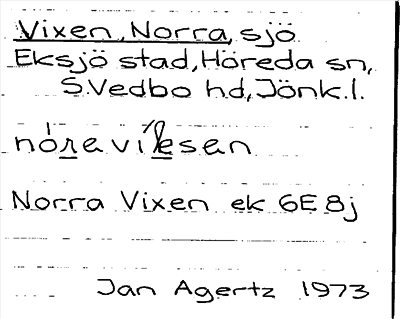 Vixen, Norra, sjö
Eksjö stad, Höreda sn,
S. Vedbo hd, Jönk. l.
Norra Vixen ek 6E 8j
Jan Agertz 1973